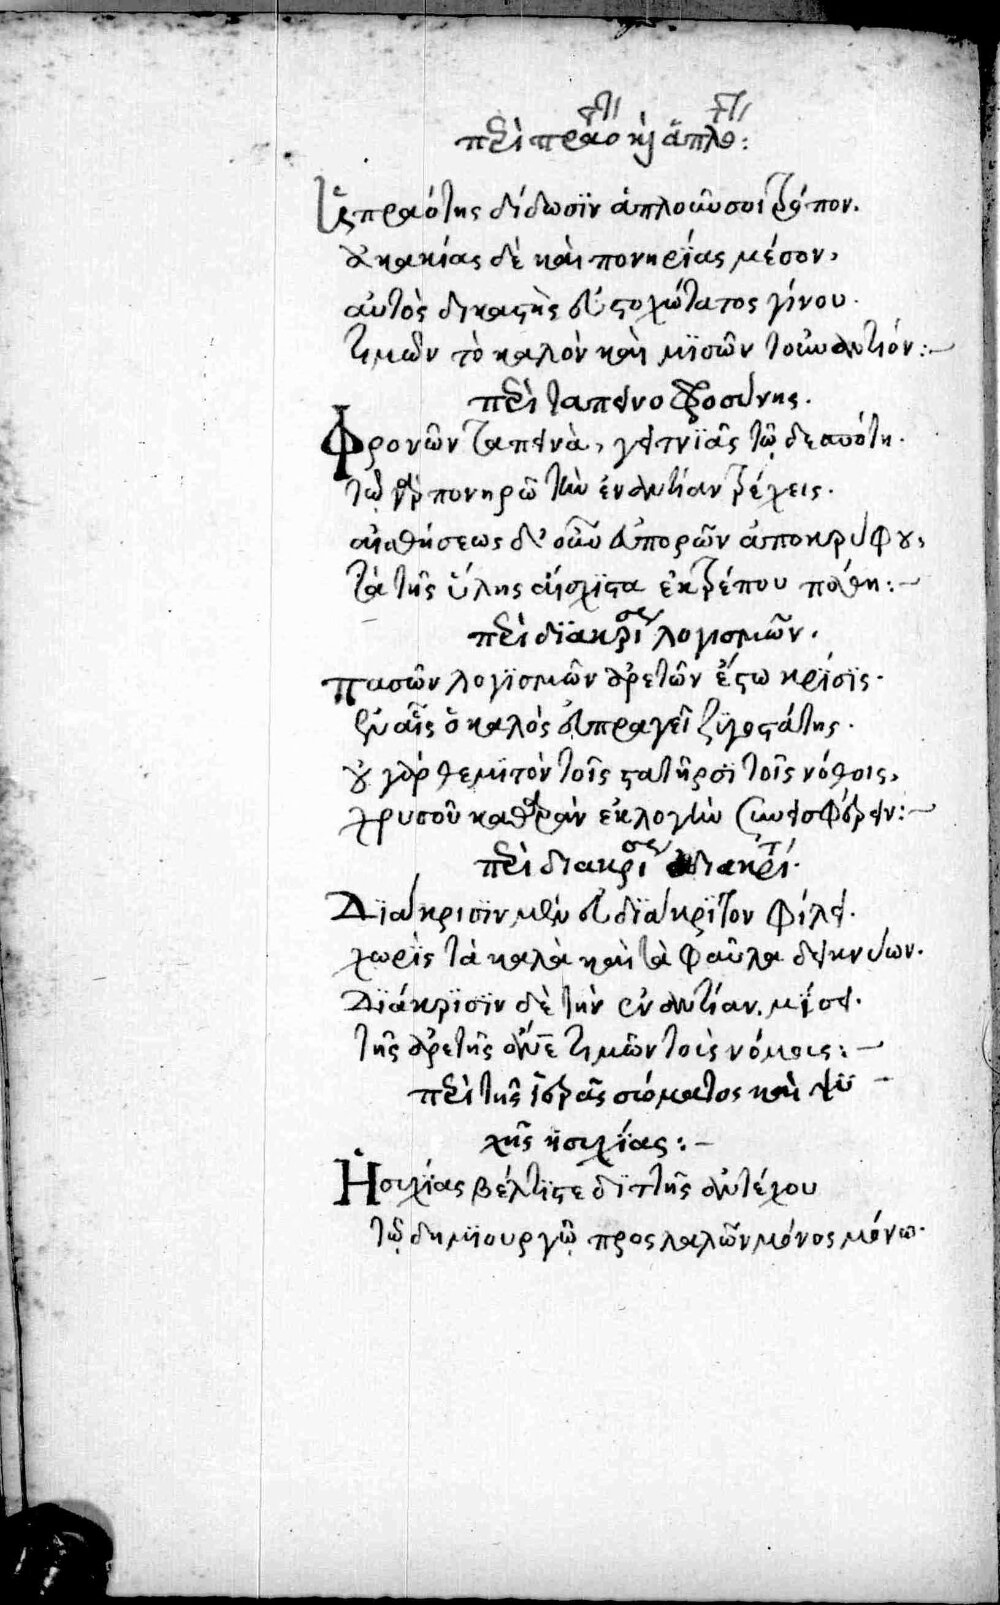 περὶ πραότητος καὶ ἁπλότητος:
πραότης δίδωσϊν ἁπλοῦν σοι τρόπον.
κακίας δὲ καὶ πονηρΐας μέσον,
αὐτὸς δικαστὴς εὐστοχώτατος γίνου.
τιμῶν τὸ καλὸν καὶ μϊσῶν τοὐναντίον:~
περὶ ταπεινοφροσύνης.
Φρονῶν ταπεινὰ, γειτνϊᾶς τῷ δεσπότῃ.
τῷ γὰρ πονηρῷ τὴν ἐναντίαν τρέχεις.
αἰσθήσεως δ' οὖν εὐπορῶν ἀποκρύφου,
τὰ τῆς ὕλης αἴσχϊστα ἐκτρέπου πάθη:~
περὶ δϊακρίσεως λογισμῶν.
πασῶν λογϊσμῶν ἀρετῶν ἔστω κρΐσϊς.
ζυγοστάτης.
οὐ γὰρ θεμϊτὸν τοῖς στατῆρσϊ τοῖς νόθοις,
χρυσοῦ καθαρὰν ἐκλογὴν συνεισφέρειν:~
περὶ διακρίσεως ἀδιακρίτου.
Δϊάκρισϊν μὲν εὐδϊάκρϊτον φίλει.
χωρὶς τὰ καλὰ καὶ τὰ φαῦλα δεικνύων.
Δϊάκρϊσϊν δὲ τὴν ἐναντίαν. μΐσει.
τῆς ἀρετῆς τιμῶν τοὺς νόμους:~
περὶ τῆς ἱερᾶς σώματος καὶ ψυ
χῆς ἡσυχΐας:~
Ἡσυχΐας βέλτϊστε δϊττῆς ἀντέχου
τῷ δημϊουργῷ προσλαλῶν μόνος μόνω.